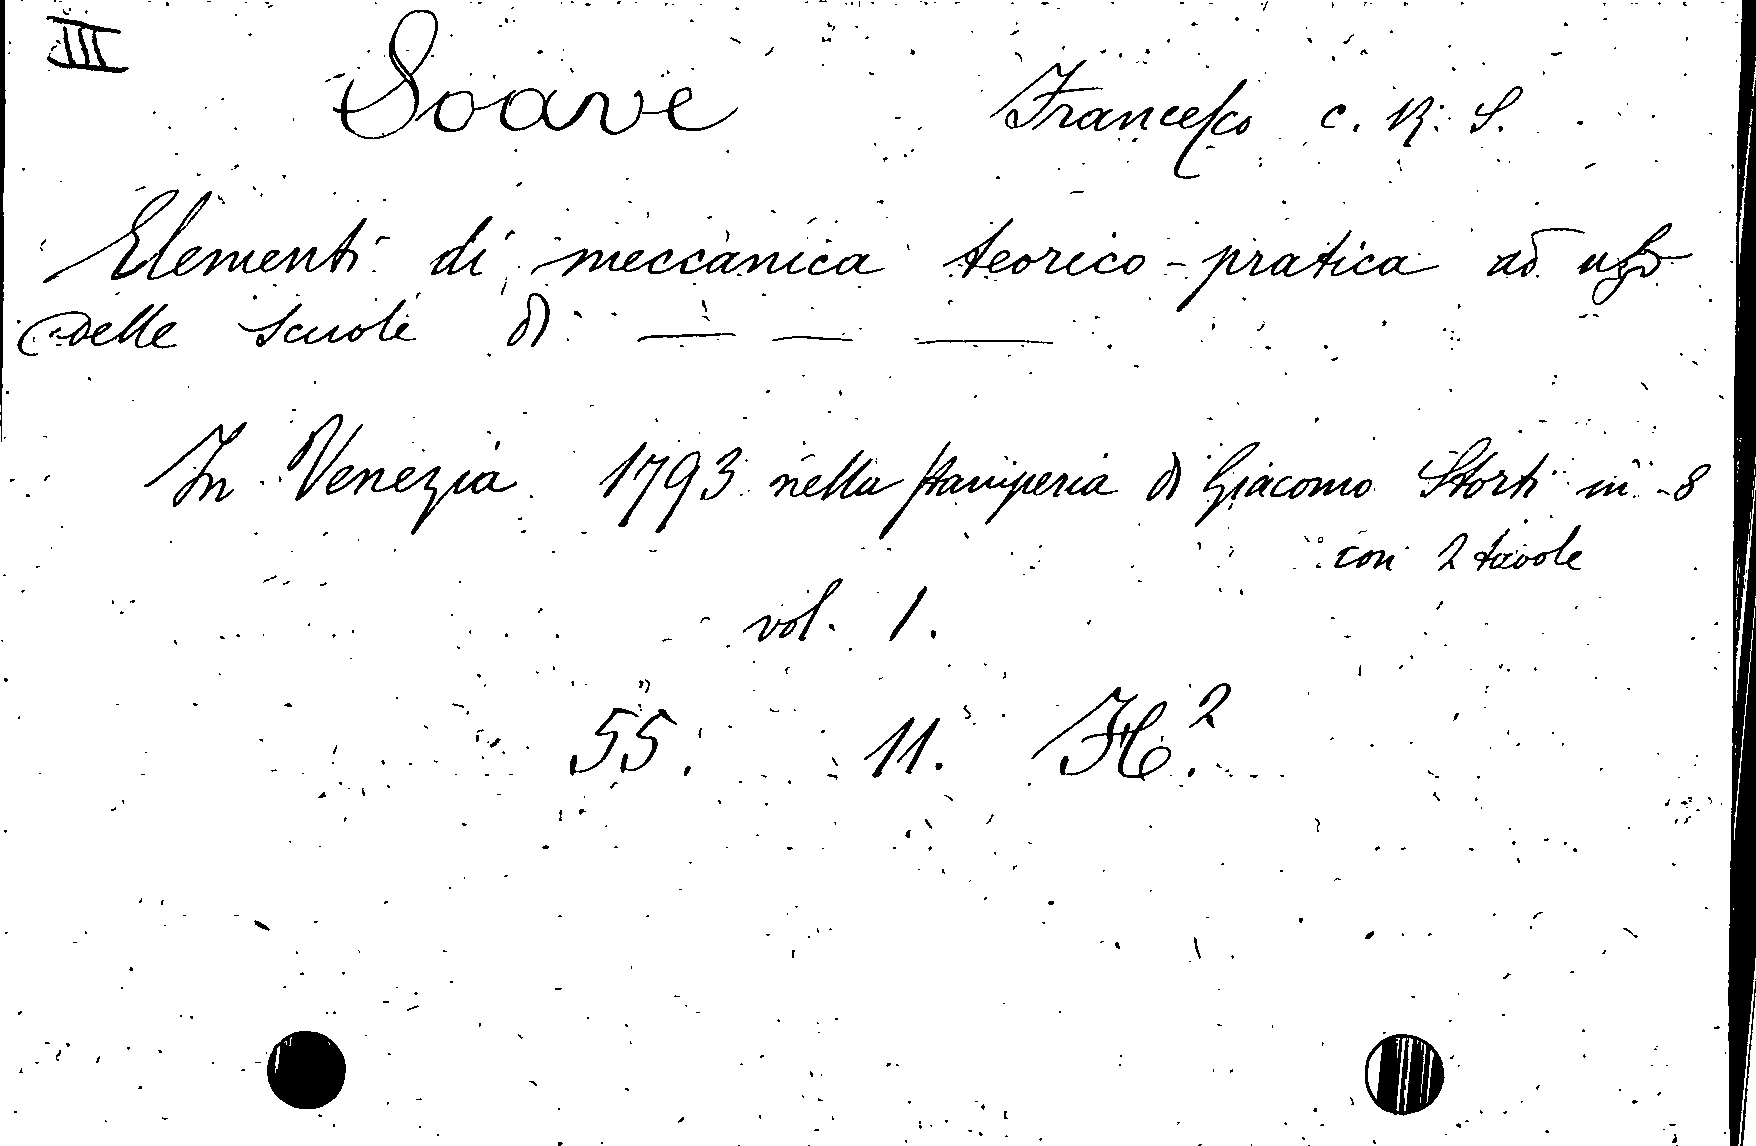 III
Soave Francesco C. R. S.
Elementi di meccanica teorico-pratica ad uso
delle scuole di — — —
In Venezia 1793 nella stamperia di Giacomo Storti in-8
con 2 tavole
vol. 1.
55. 11. H².